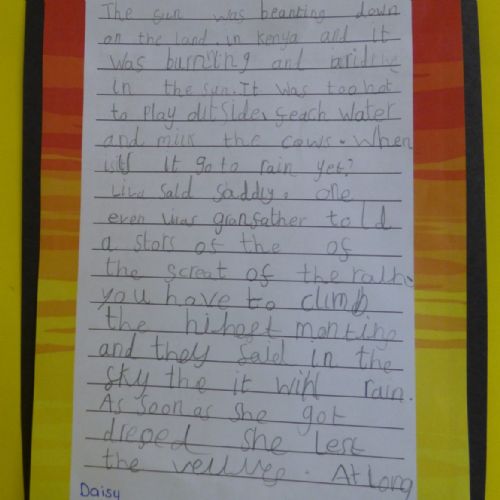 The sun was beanting down
on the land in kenya and it
was burning and
in the sun. It was too hot
to play outside, feach water
and milk the cows. When
it go to rain yet?
Liva said saddly. one
even Livas granfather told
a stors of the of
the screat of the rain
you have to climb
the hihest monting
and they said in the
sky the it will rain.
As soon as she got
dreped she left
the . At long
Daisy